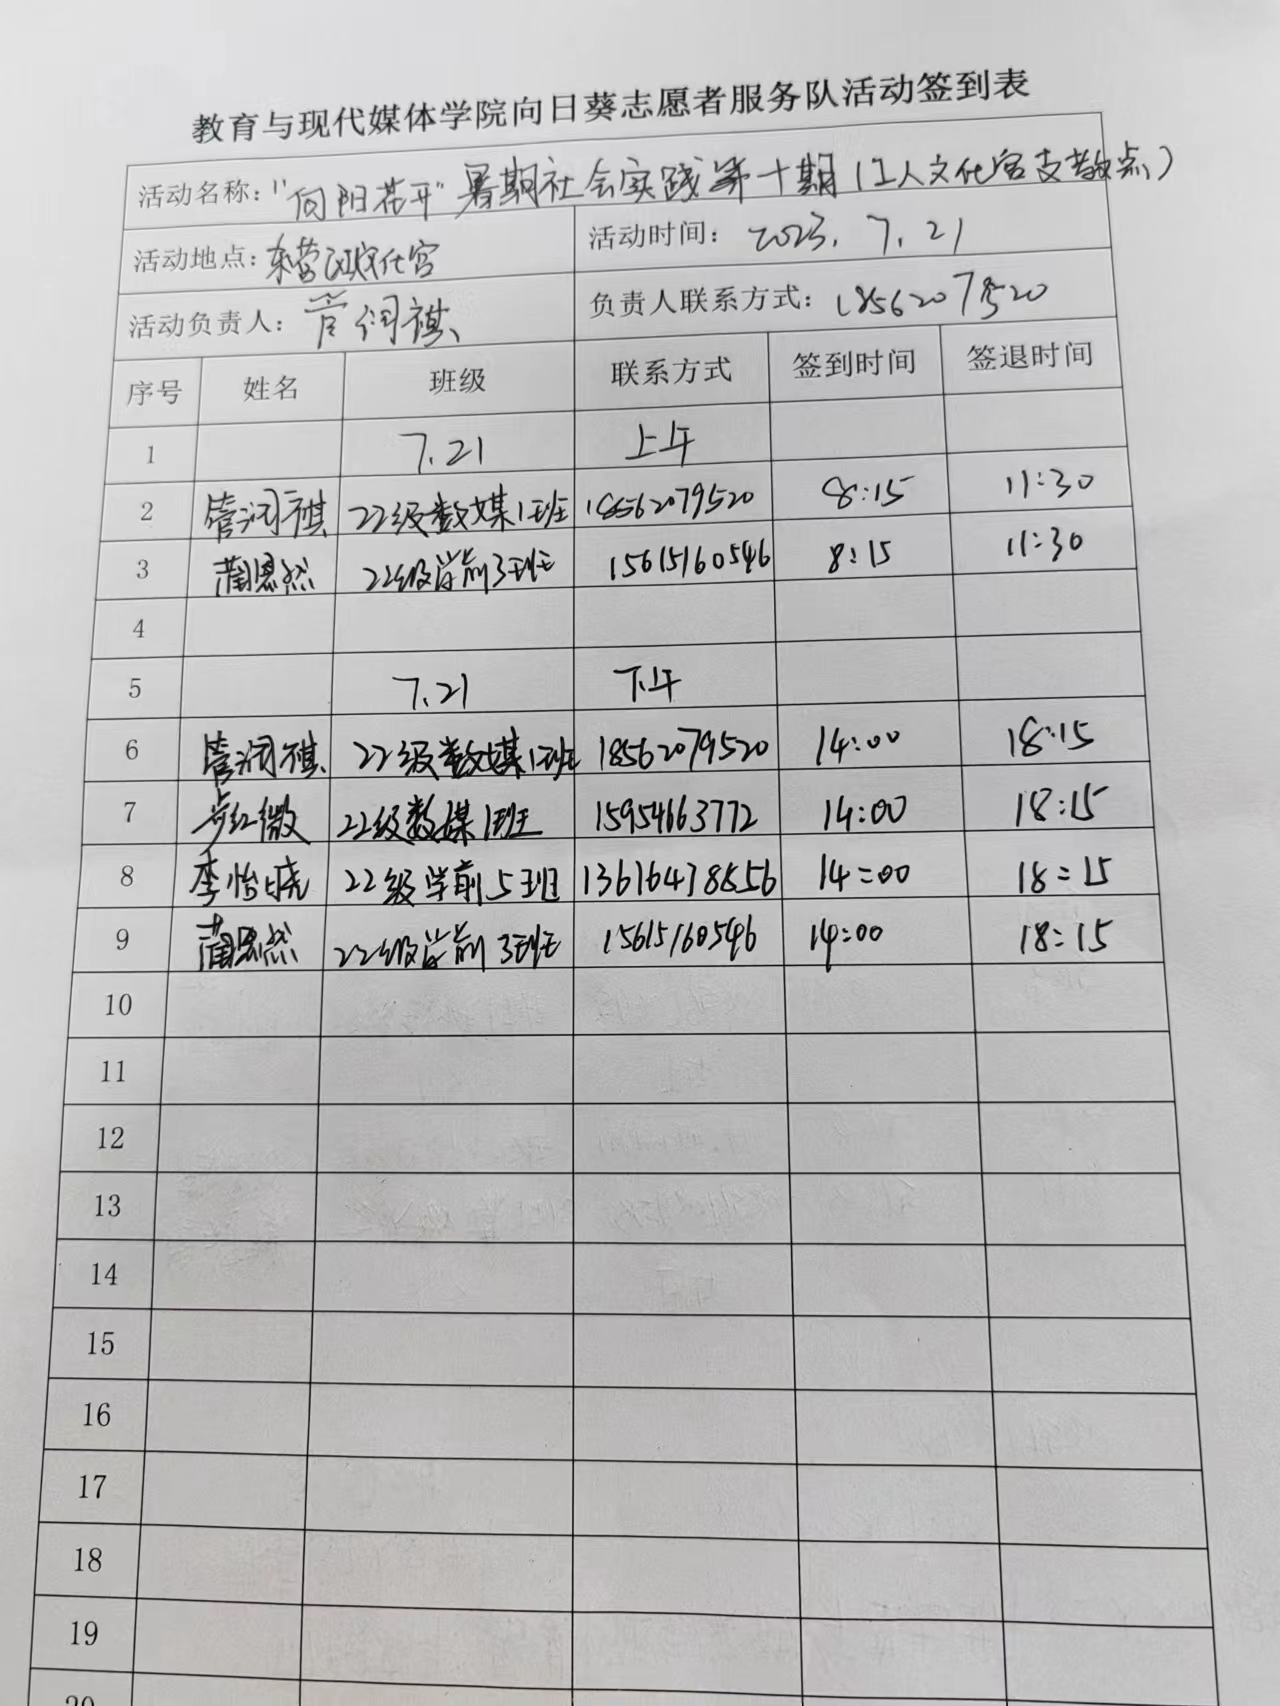 教育与现代媒体学院向日葵志愿者服务队活动签到表
活动名称："向阳花开"暑期社会实践第十期（工人文化宫支教点）
活动地点：东营区文化宫 活动时间：2023.7.21
活动负责人：管润祺 负责人联系方式：18562079520
序号 姓名 班级 联系方式 签到时间 签退时间
1 7.21 上午
2 管润祺 22级数媒1班 18562079520 8:15 11:30
3 蔺恩然 22级学前3班 15615160546 8:15 11:30
4
5 7.21 下午
6 管润祺 22级数媒1班 18562079520 14:00 18:15
7 步红微 22级数媒1班 15954663772 14:00 18:15
8 李怡晓 22级学前5班 13616478856 14:00 18:15
9 蔺恩然 22级学前3班 15615160546 14:00 18:15
10
11
12
13
14
15
16
17
18
19
20